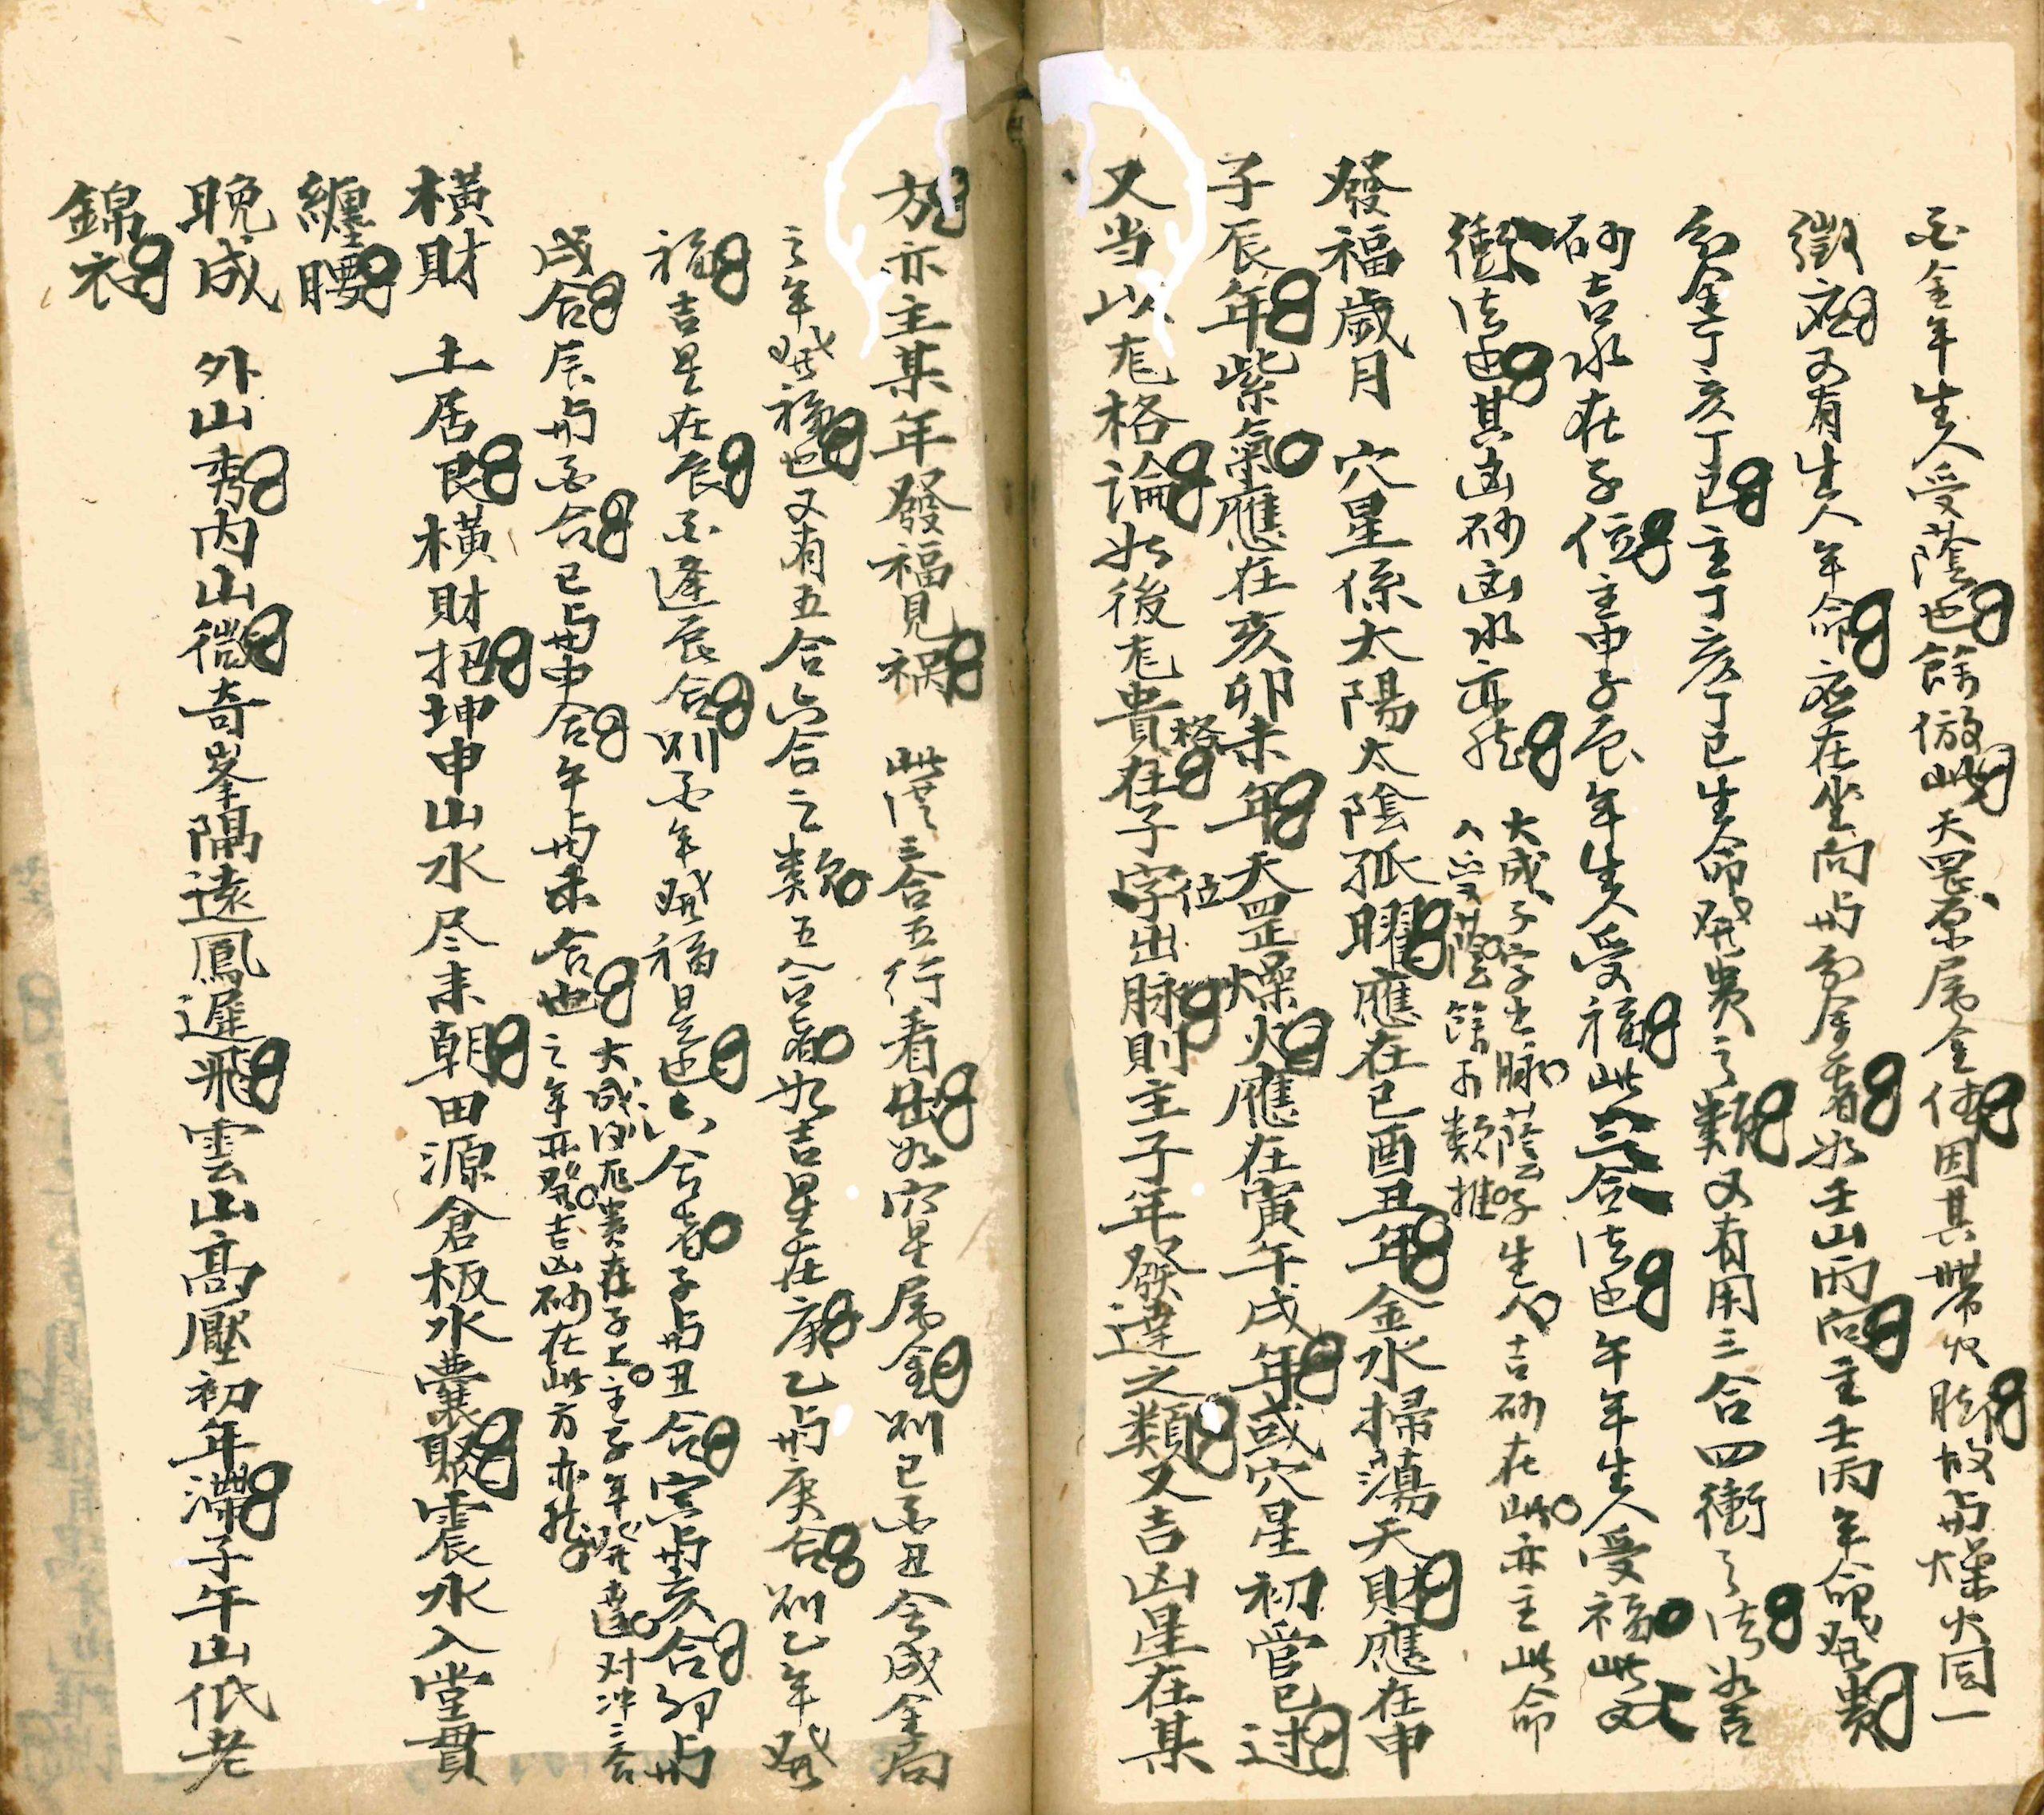 酉金年生人受蔭也餘倣此天罡原屬金体因其帶火脚故與燥火同一
徵应又有生人年命应在坐向與分金者如壬山丙向主壬丙年命發貴
分金丁亥丁巳主丁亥丁巳生命發貴之類又有用三合四衝之法如吉
砂吉水在子位主申子辰年生人受福此三合法也午年生人受福此又
衝法也其凶砂凶水亦然
大成子字出脉蔭子字生人吉砂在此亦主此命
人受蔭餘可類推
發福歲月 穴星係太陽太陰孤曜應在巳酉丑年金水掃蕩天財應在申
子辰年紫氣應在亥卯未年天罡燥火應在寅午戌年或穴星初官已过
又当以龙格論如後龙貴格在子字位出脉則主子年發達之類又吉凶星在某
方亦主某年發福見禍 此從三合五行看出如穴星屬金則巳酉丑会成金局
之年發福也又有五合六合之類五合者如吉星在庚乙與庚合則乙年發
福吉星在辰酉逢辰合則酉年發福是也六合者子與丑合寅與亥合卯與
戌合辰與酉合巳與申合午與未合也
大成后龙貴在子上主子年發達对冲三合
之年亦發吉凶砂在此方亦然
横財 土居艮横財招坤申山水尽来朝田源倉板水囊聚震水入堂貫
纏腰
晚成 外山秀内山微奇峯隔遠鳳遲飛雲山高壓初年滯子午山低老
錦衣